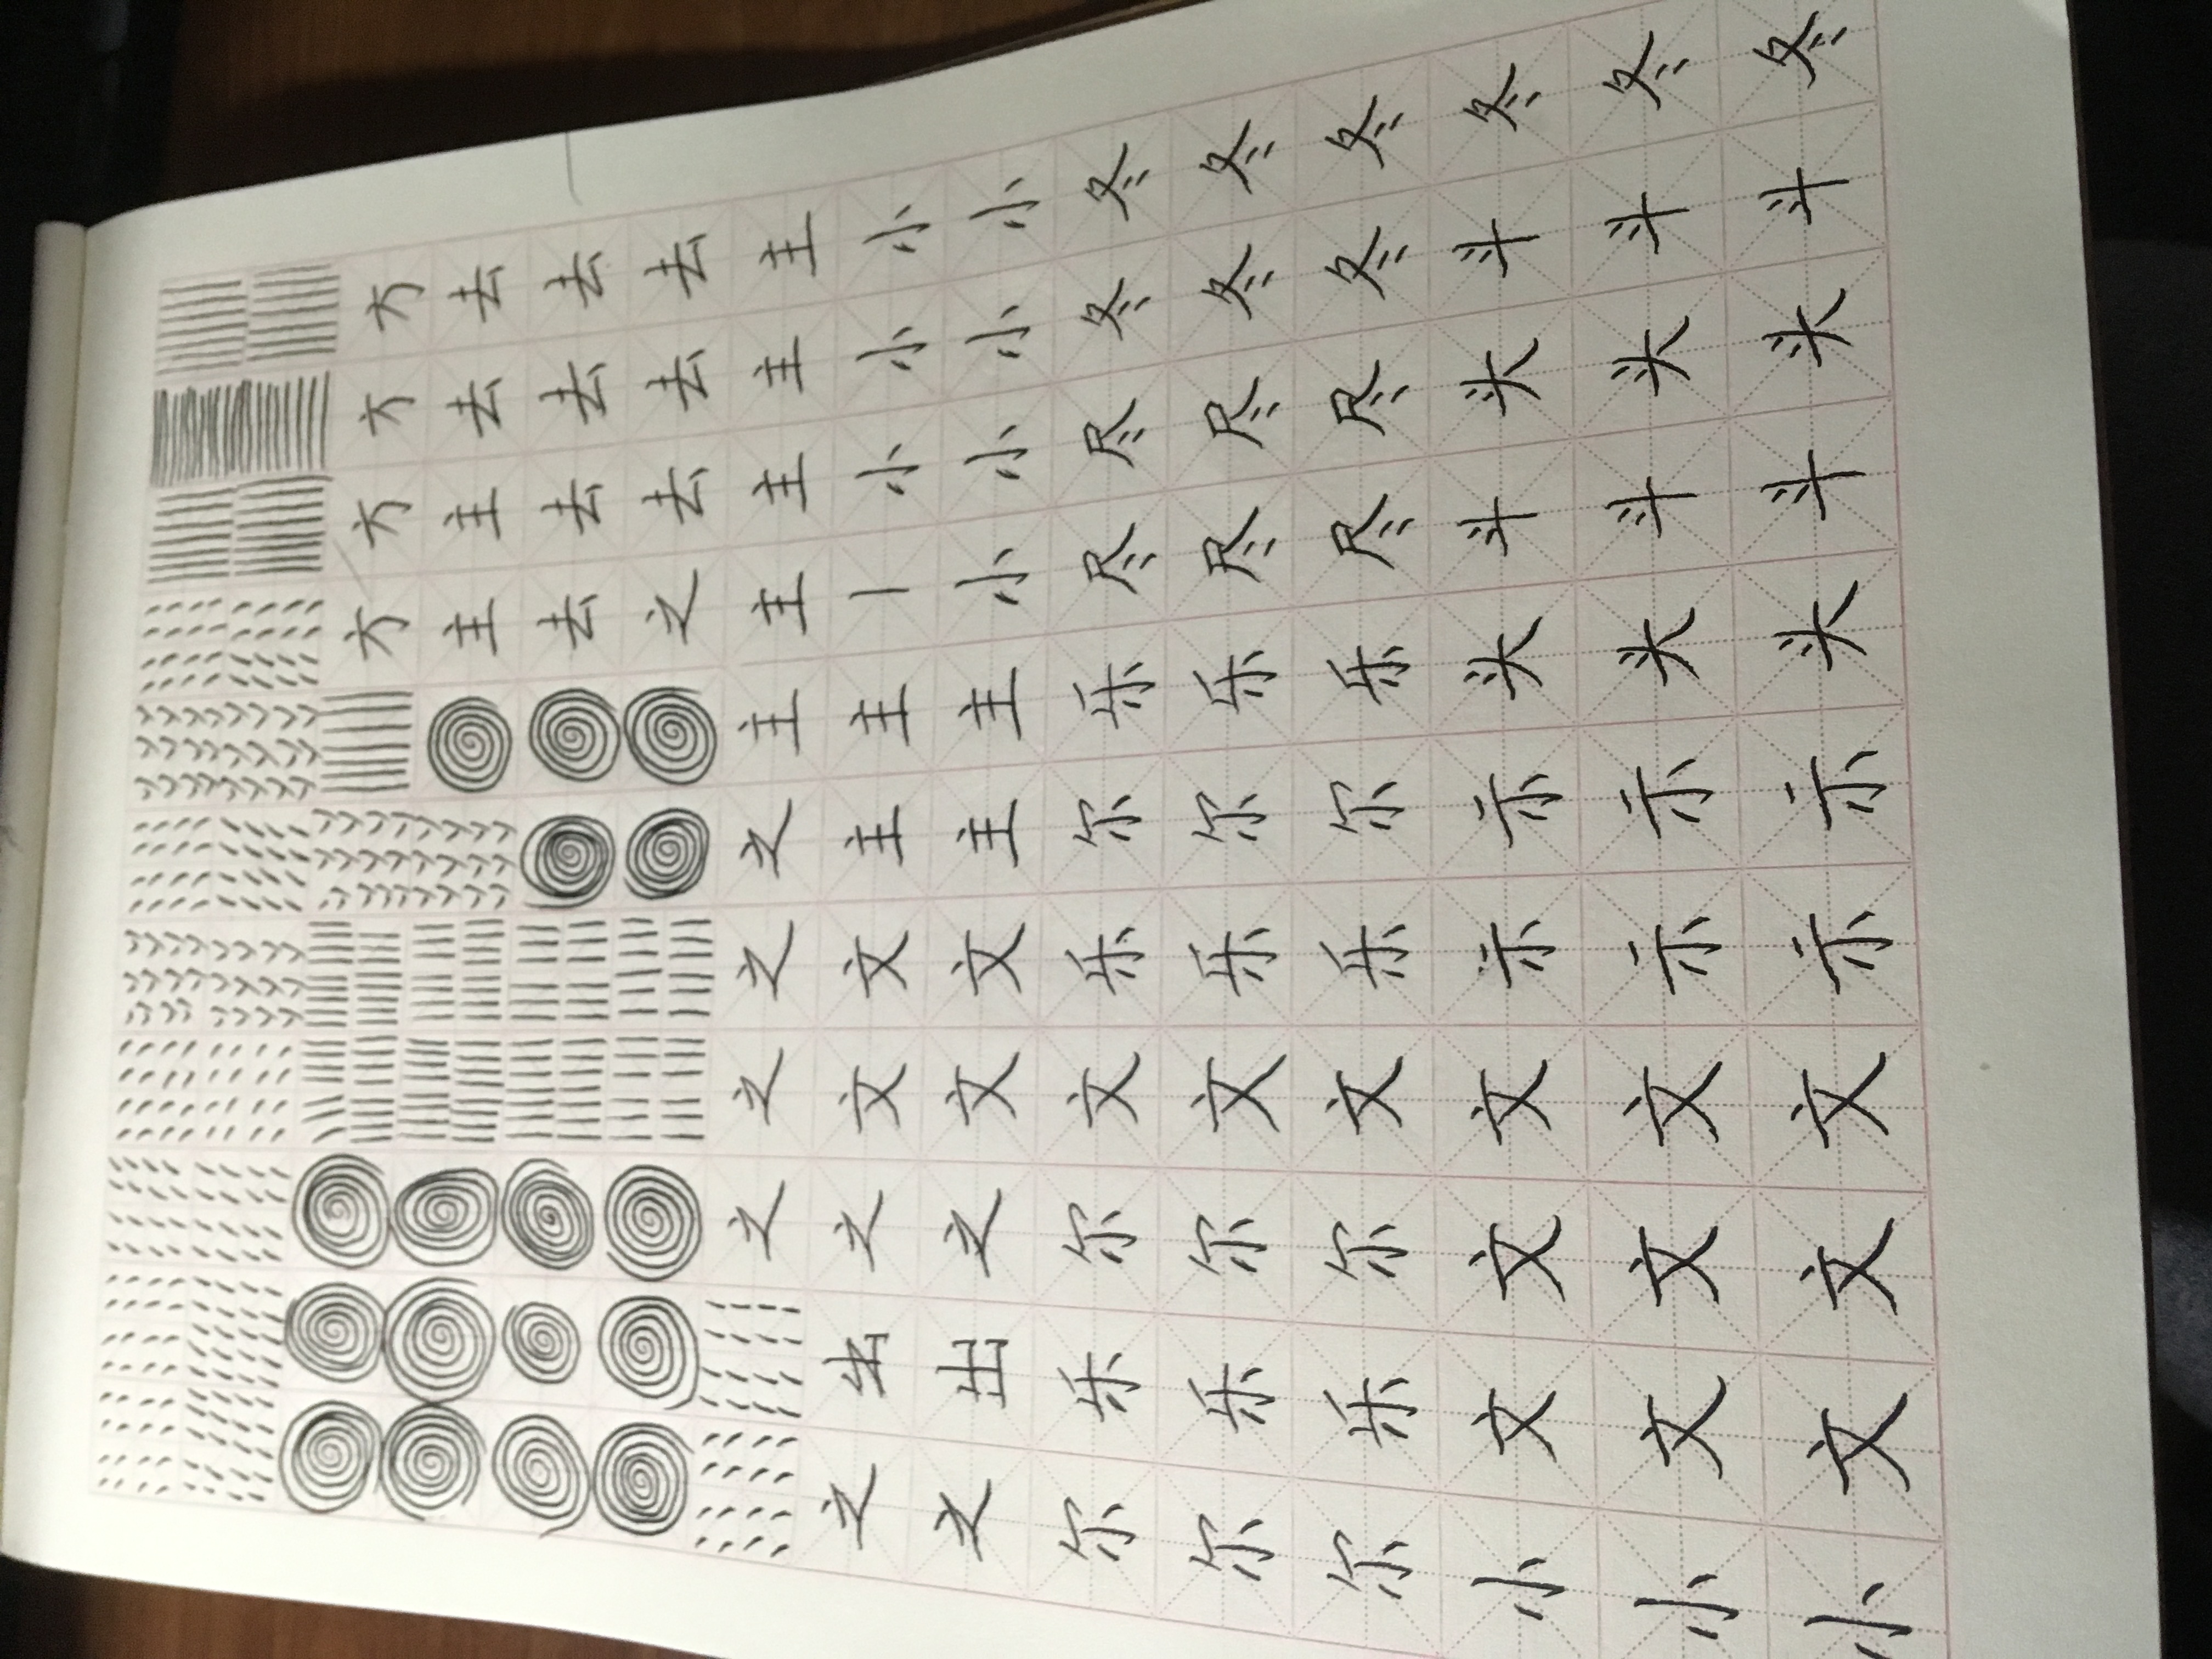 方 方 方 方
主 主 去 去
去 去 去 去
之 去 去 去
之 之 之 之 主 主 主 主 主
之 出 之 文 文 主 主 丨 小 小 小
之 出 之 文 文 主 主 小 小 小 小
尔 乐 尔 文 乐 尔 乐 尽 尽 冬 冬
尔 乐 尔 文 乐 尔 乐 尽 尽 冬 冬
尔 乐 尔 文 乐 尔 乐 尽 尽 冬 冬
小 文 文 文 示 示 头 斗 头 斗 冬
小 文 文 文 示 示 头 斗 头 斗 冬
小 文 文 文 示 示 头 斗 头 斗 冬